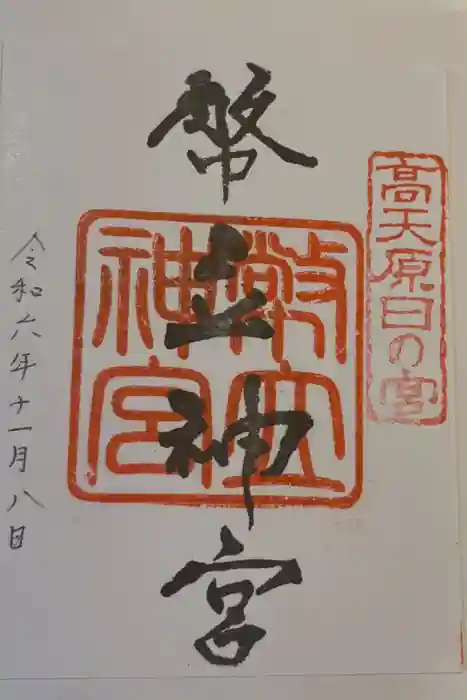 高天原日の宮
幣立神宮
幣立神宮
令和六年十一月八日